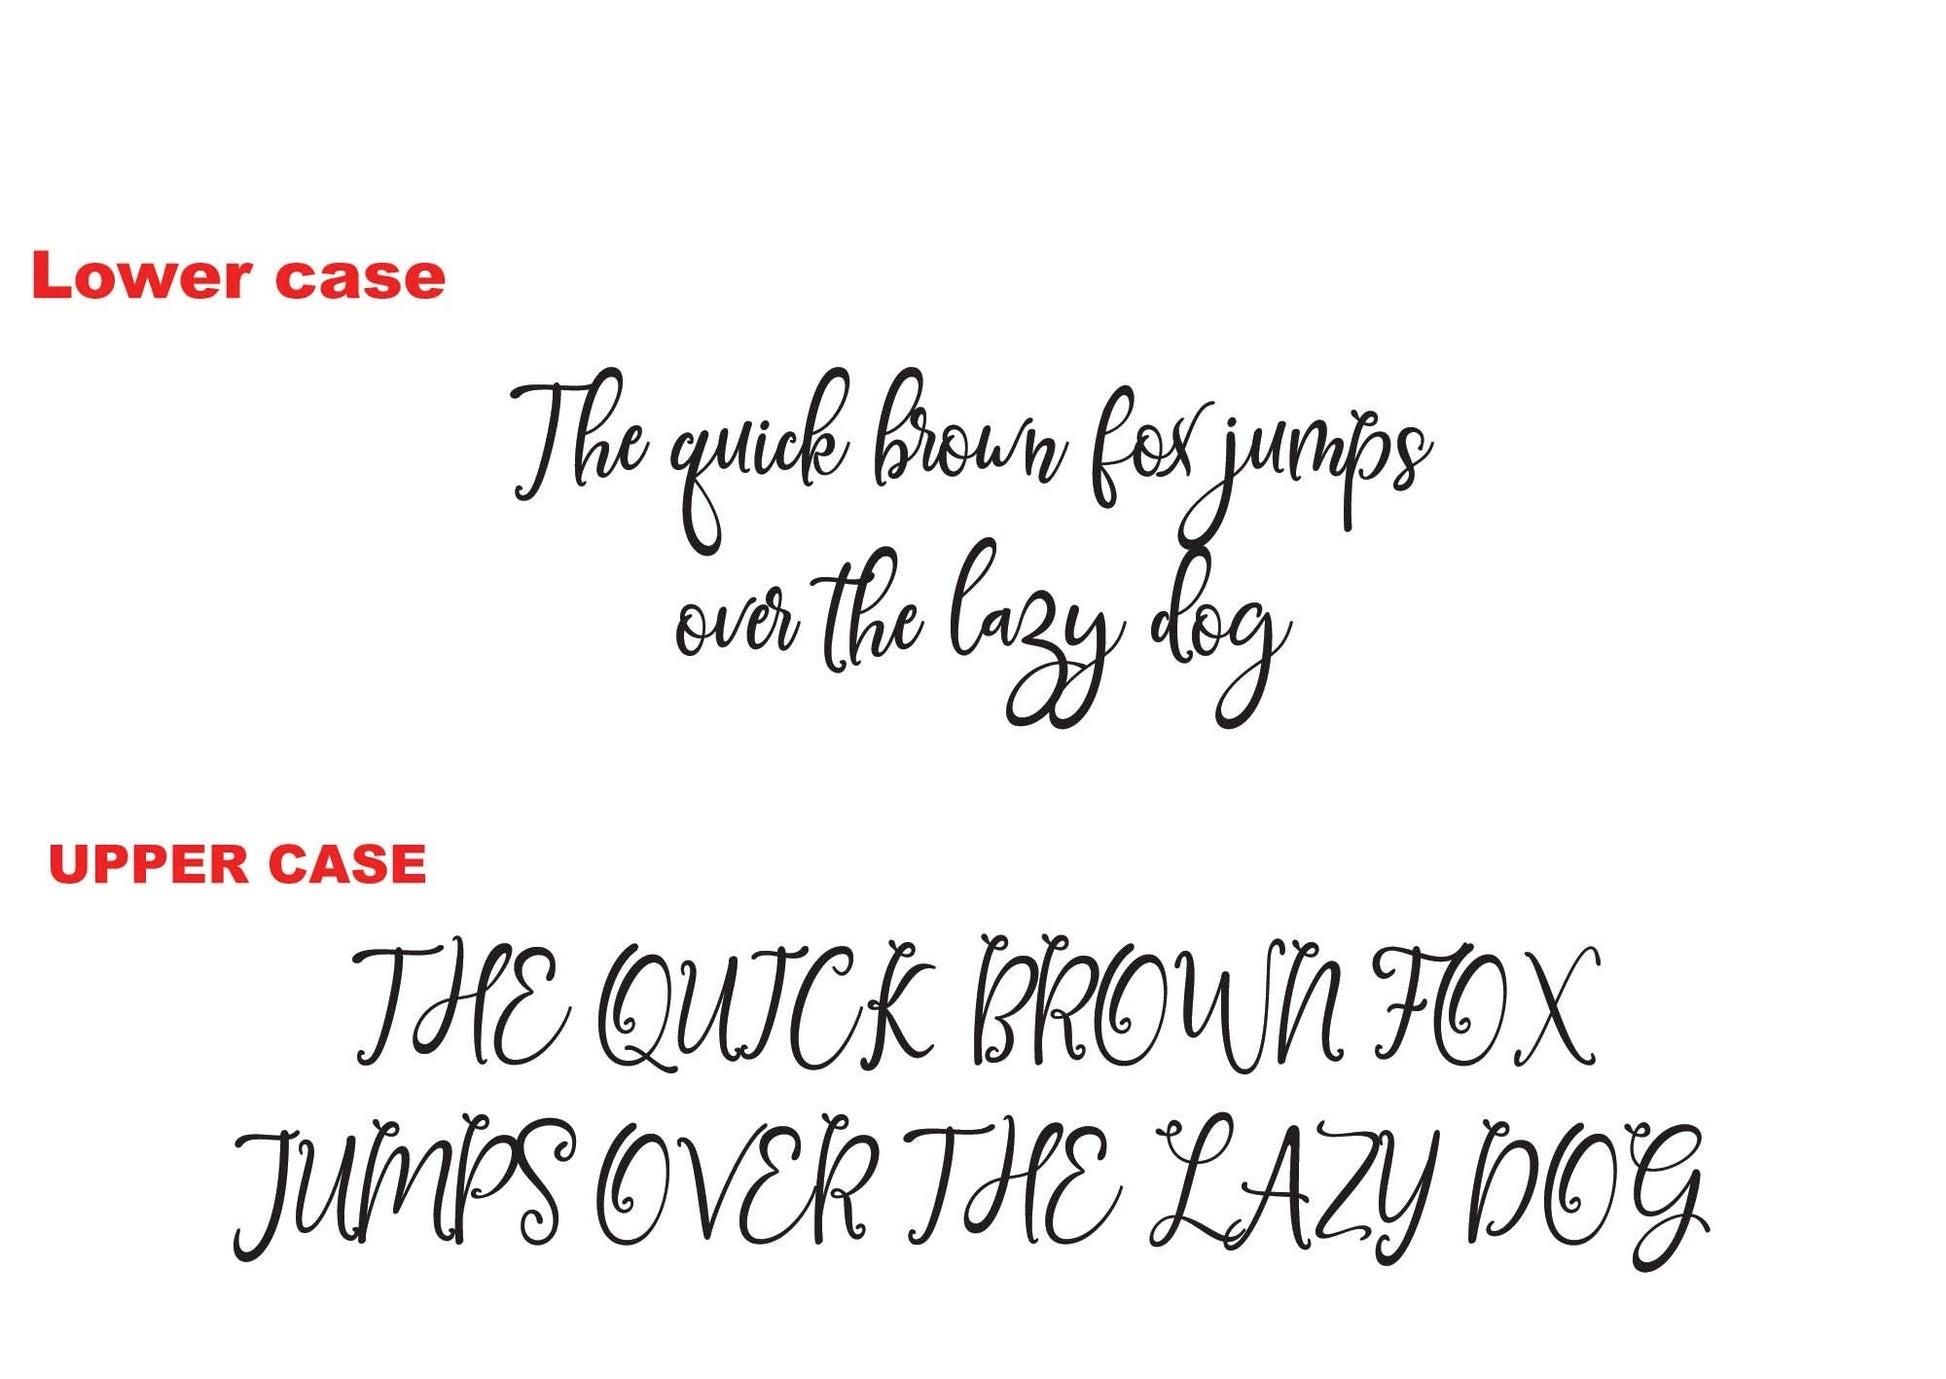 Lower case
The quick brown fox jumps
over the lazy dog
UPPER CASE
THE QUICK BROWN FOX
JUMPS OVER THE LAZY DOG